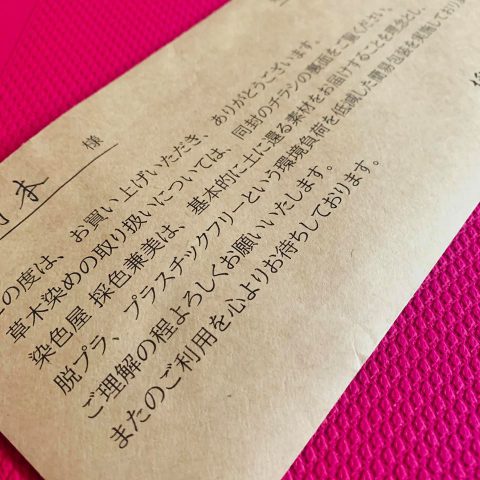 本 様
の度は、お買い上げいただき、ありがとうございます。
草木染めの取り扱いについては、同封のチラシの裏面をご覧ください。
染色屋 採色兼美は、基本的に土に還る素材をお届けすることを理念とし、
脱プラ、プラスチックフリーという環境負荷を低減した簡易包装を実施しており
ご理解の程よろしくお願いいたします。
またのご利用を心よりお待ちしております。